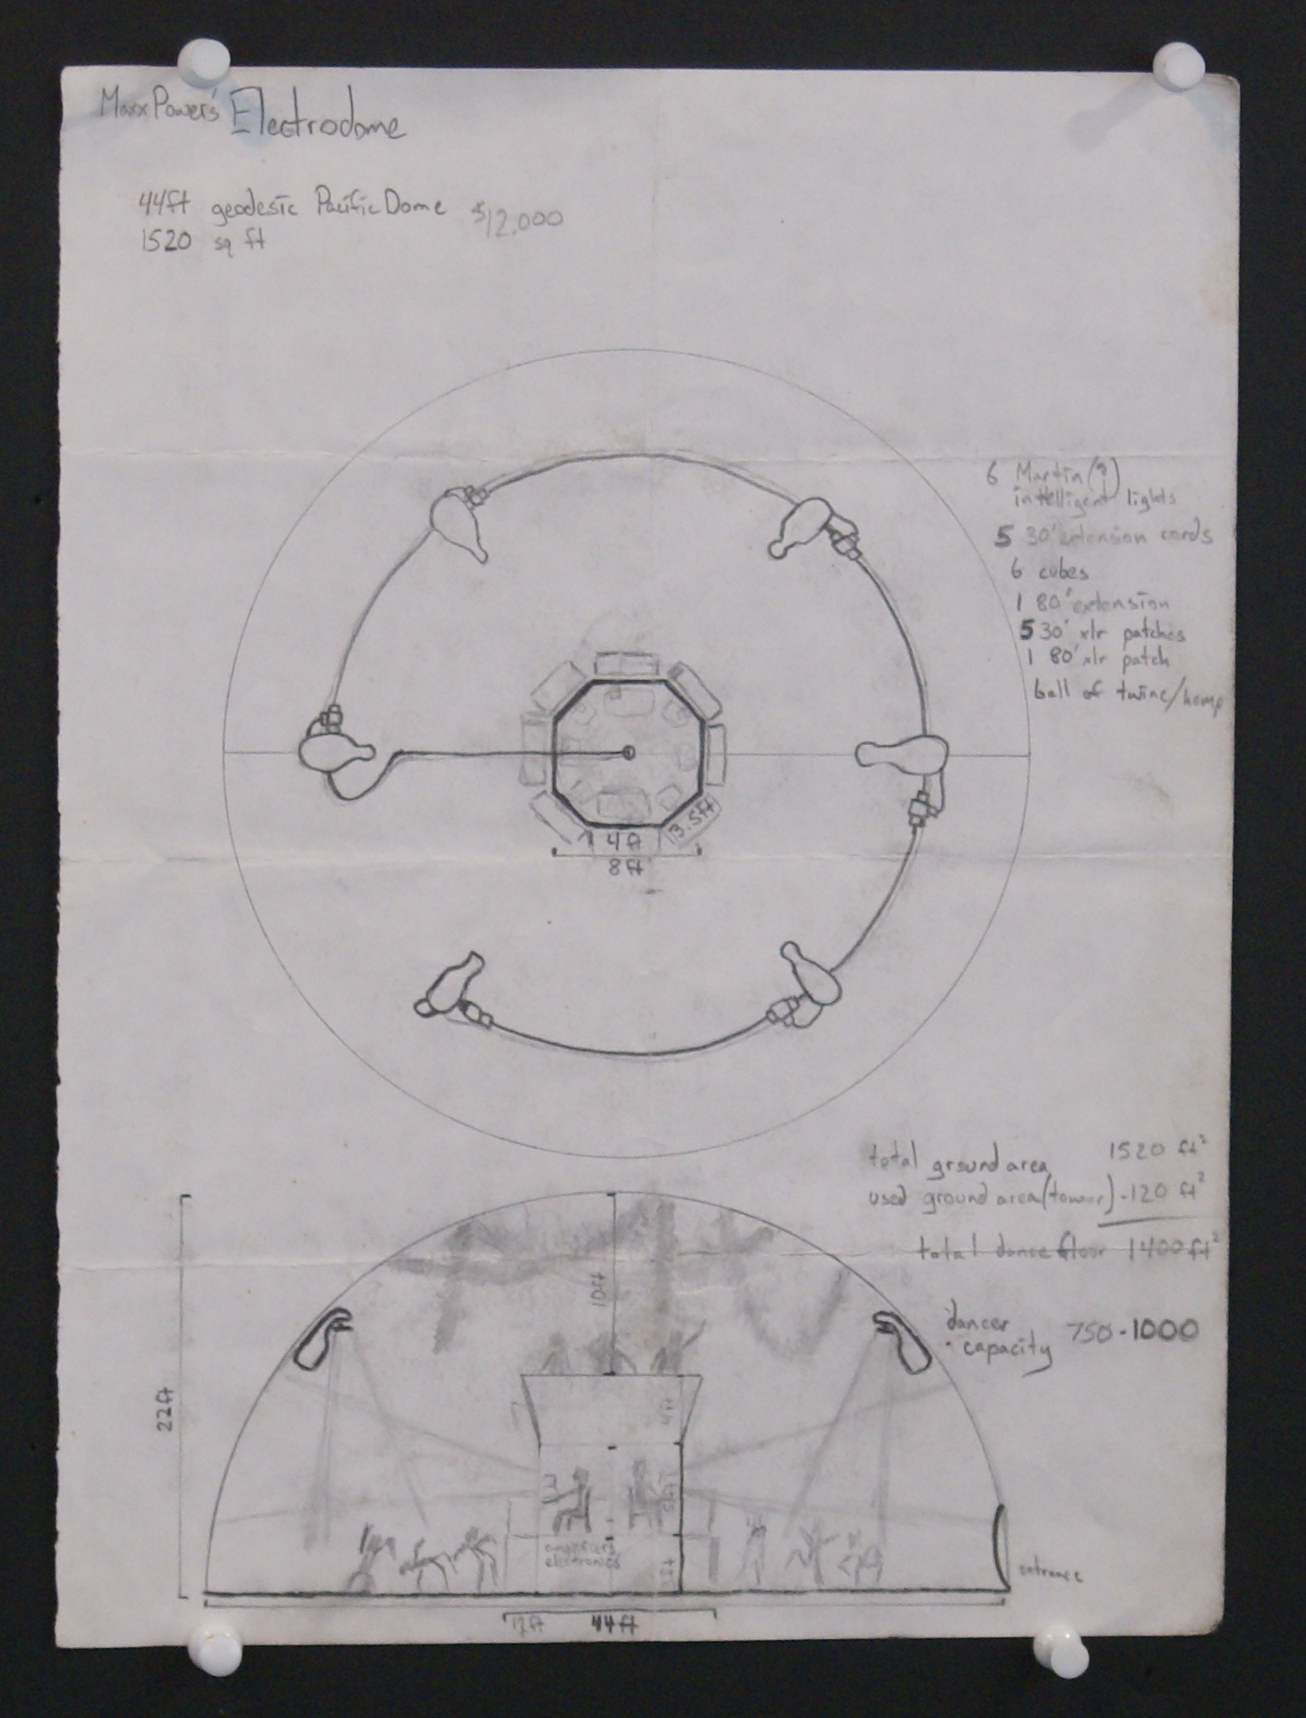 MaxxPower's Electrodome
44ft geodesic Pacific Dome $12,000
1520 sq ft
6 Martin(?)
intelligent lights
5 30' extension cords
6 cubes
1 80' extension
5 30' xlr patches
1 80' xlr patch
ball of twine/hemp
3.5ft
4ft
8ft
total ground area 1520 ft²
used ground area (tower) -120 ft²
total dance floor 1400 ft²
dancer capacity 750-1000
10ft
22ft
4ft
amplifiers
electronics
entrance
12ft 44ft